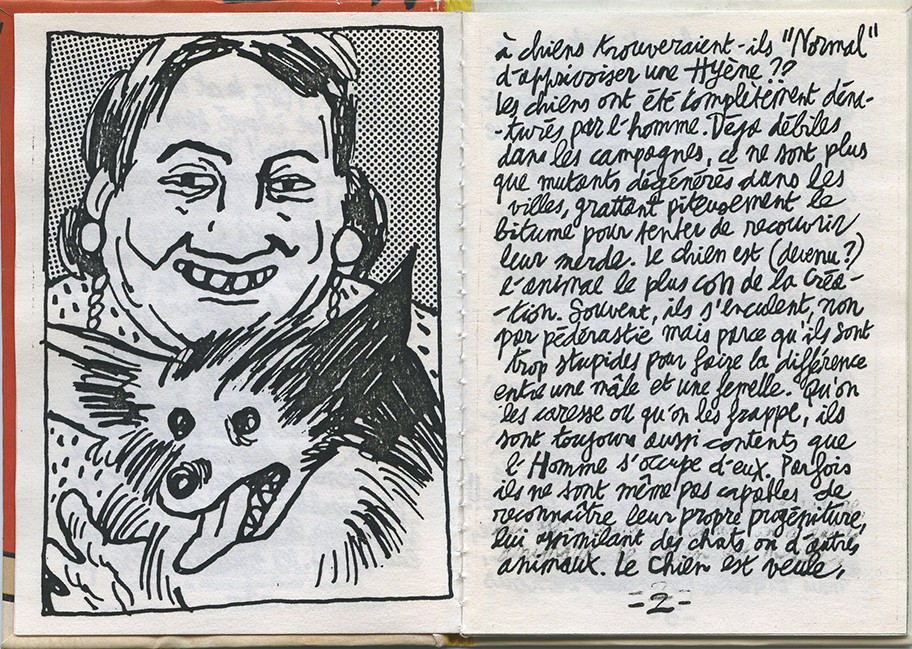 à chiens trouveraient-ils "Normal"
d'apprivoiser une Hyène ??
Les chiens ont été complètement déna-
-turés par l'homme. Déjà débiles
dans les campagnes, ce ne sont plus
que mutants dégénérés dans les
villes, grattant piteusement le
bitume pour tenter de recouvrir
leur merde. Le chien est (devenu ?)
l'animal le plus con de la Créa-
-tion. Souvent, ils s'enculent, non
par pédérastie mais parce qu'ils sont
trop stupides pour faire la différence
entre une mâle et une femelle. Qu'on
les caresse ou qu'on les frappe, ils
sont toujours aussi contents que
l'Homme s'occupe d'eux. Parfois
ils ne sont même pas capables de
reconnaître leur propre progéniture,
lui assimilant des chats ou d'autres
animaux. Le chien est veule,
-2-